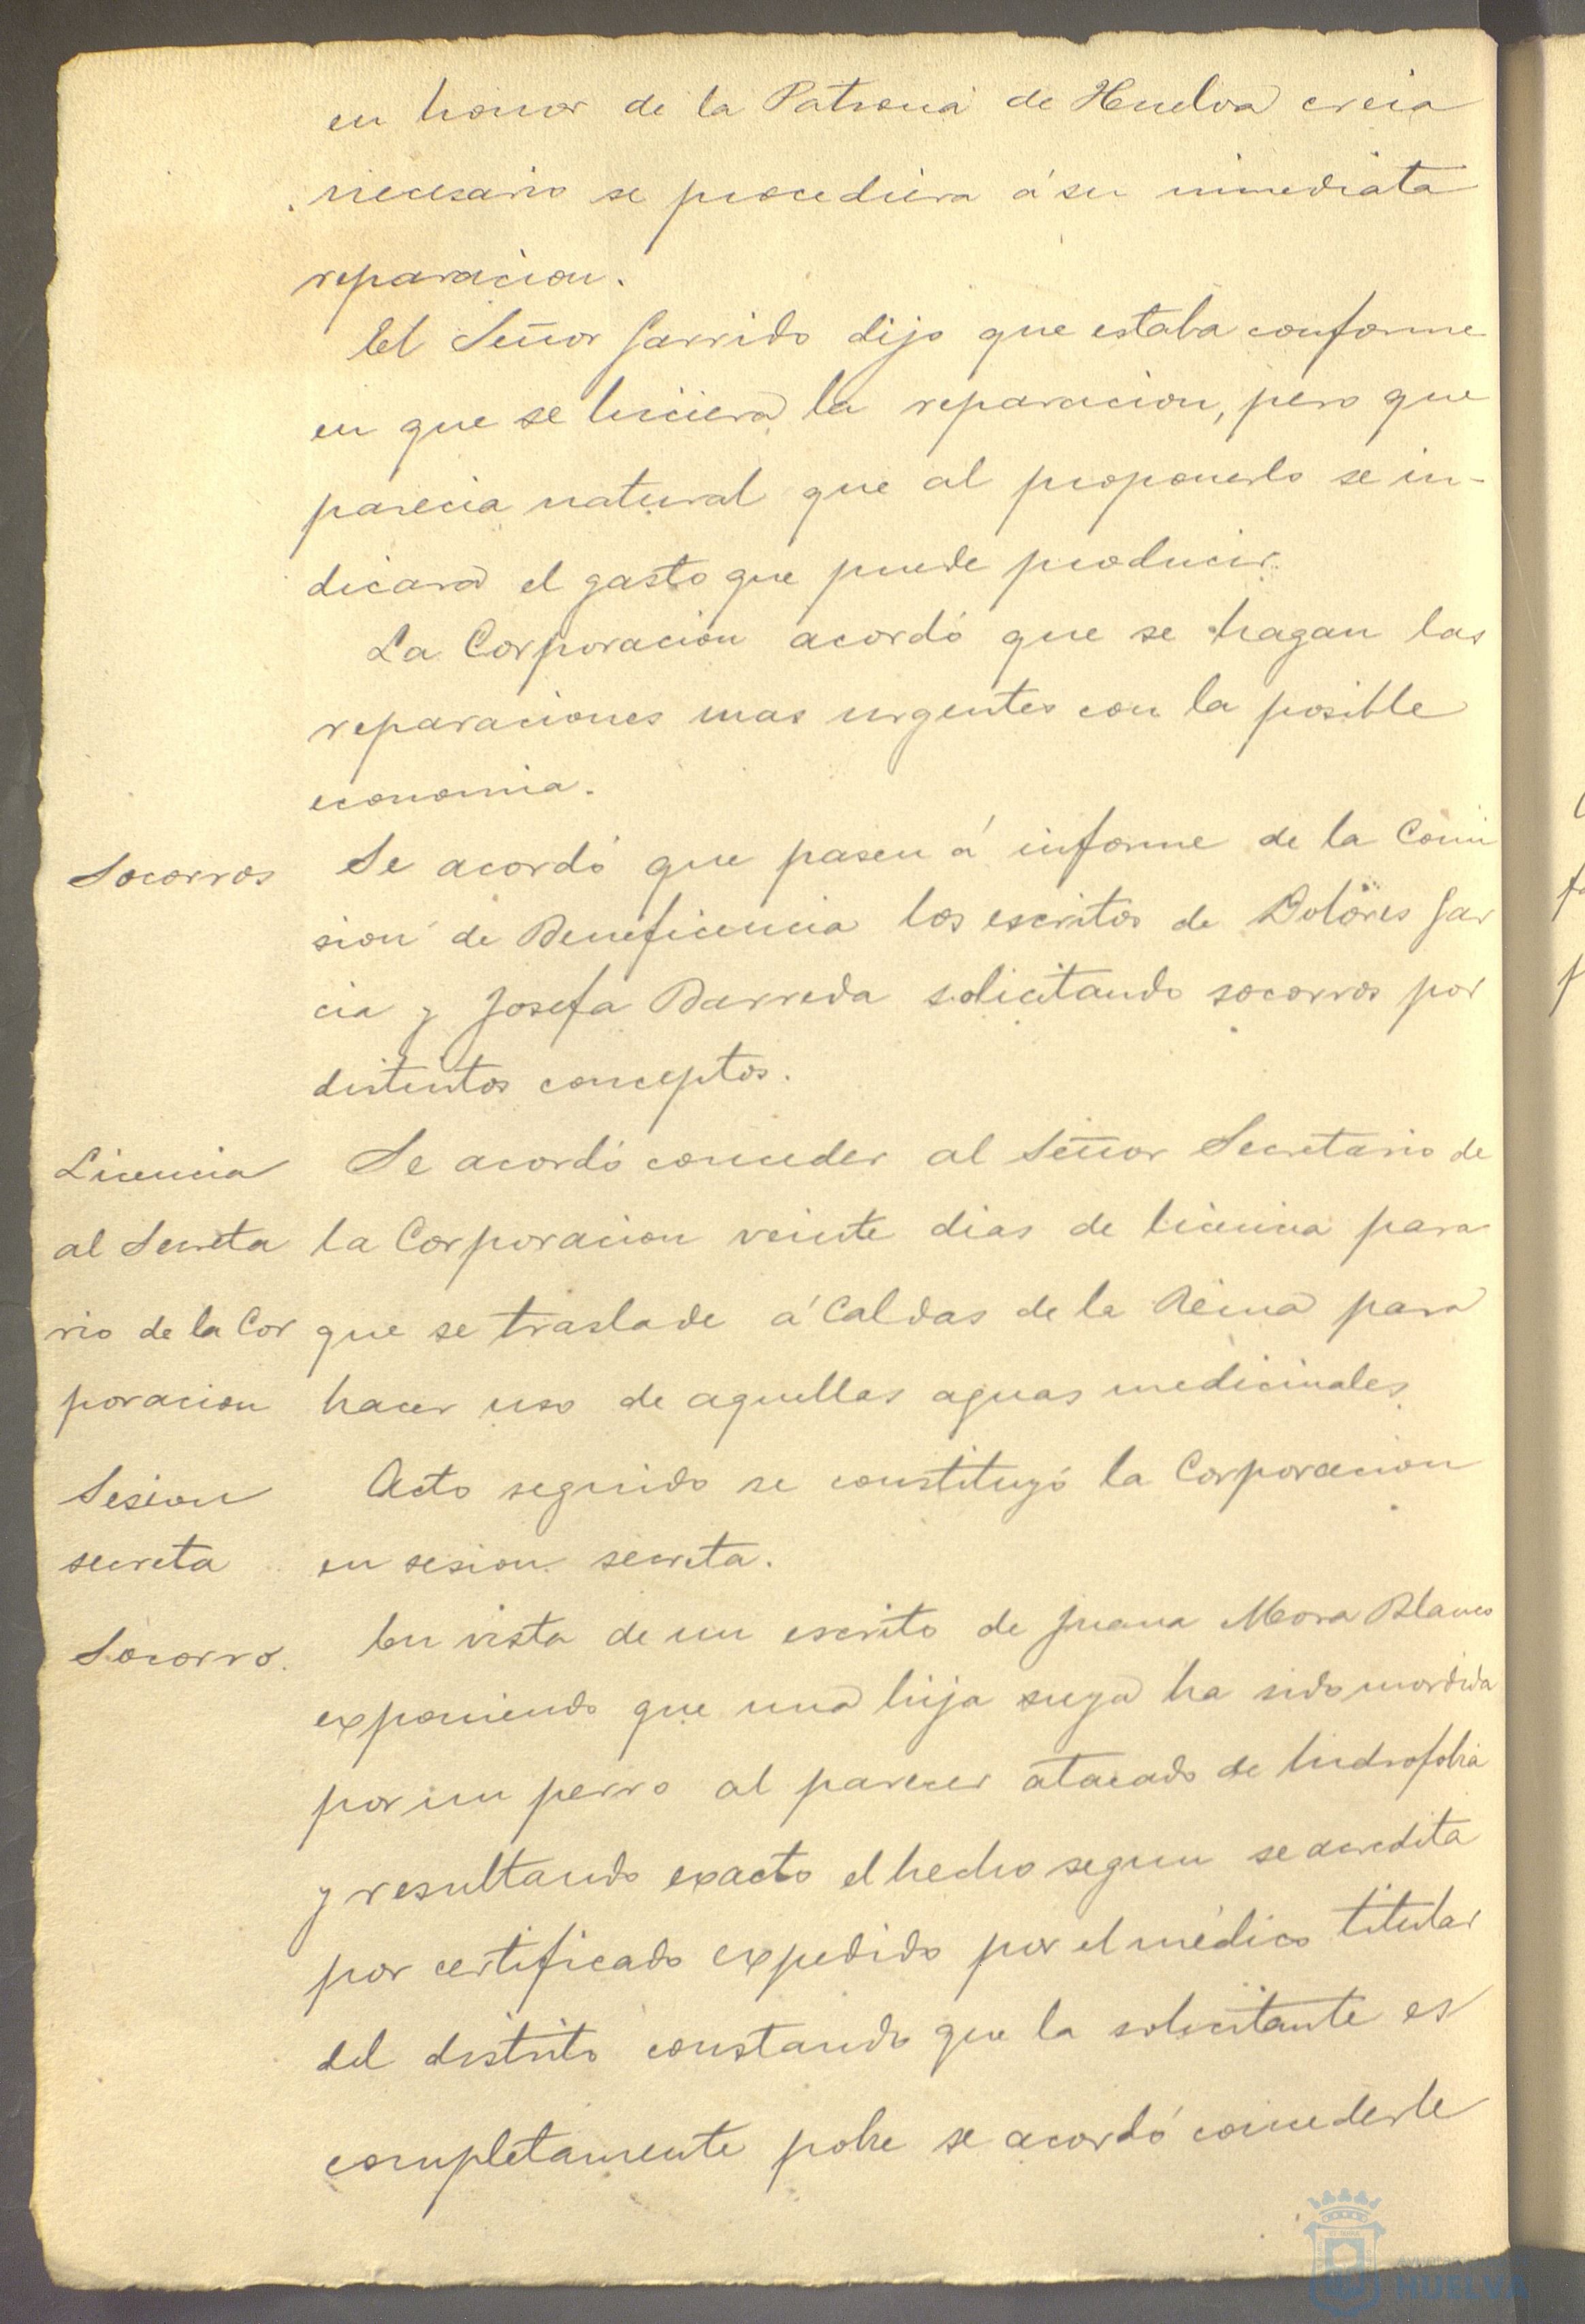 en honor de la Patrona de Huelva creia
necesario se procediera á su inmediata
reparacion.
El Señor Garrido dijo que estaba conforme
en que se hiciera la reparacion, pero que
parecia natural que al proponerlo se in-
dicara el gasto que puede producir.
La Corporacion acordó que se hagan las
reparaciones mas urgentes con la posible
economia.
Socorros
Se acordó que pasen á informe de la Comi
sion de Beneficencia los escritos de Dolores Gar
cia y Josefa Barreda solicitando socorros por
distintos conceptos.
Licencia
al Secreta
rio de la Cor
poracion
Se acordó conceder al Señor Secretario de
la Corporacion veinte dias de licencia para
que se traslade á Caldas de la Reina para
hacer uso de aquellas aguas medicinales.
Sesion
secreta
Acto seguido se constituyó la Corporacion
en sesion secreta.
Socorro.
En vista de un escrito de Juana Mora Blanco
exponiendo que una hija suya ha sido mordida
por un perro al parecer atacado de hidrofobia
y resultando exacto el hecho segun se acredita
por certificado expedido por el médico titular
del distrito constando que la solicitante es
completamente pobre se acordó concederle
HUELVA